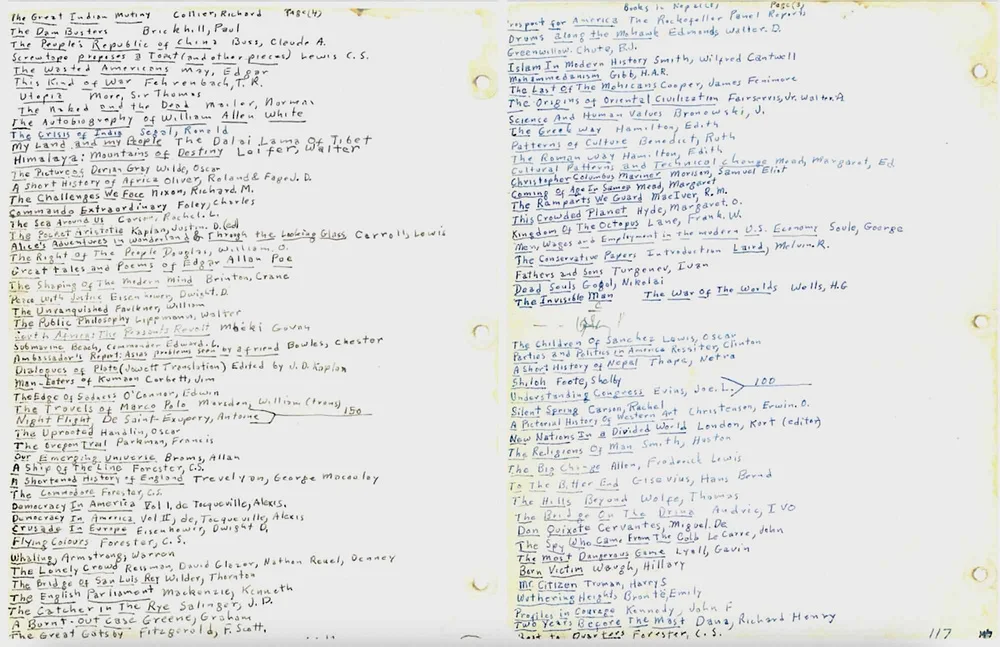 The Great Indian Mutiny Collier, Richard Page(4)
The Dam Busters Brickhill, Paul
The People's Republic of China Buss, Claude A.
Screwtape proposes a Toast (and other pieces) Lewis C.S.
The Wasted Americans May, Edgar
This Kind of War Fehrenbach, T.R.
Utopia More, Sir Thomas
The Naked and the Dead Mailer, Norman
The Autobiography of William Allen White
The Crisis of India Segal, Ronald
My Land and my People The Dalai Lama Of Tibet
Himalaya: Mountains of Destiny Leifer, Walter
The Picture of Dorian Gray Wilde, Oscar
A Short History of Africa Oliver, Roland & Fage J. D.
The Challenges We Face Nixon, Richard M.
Commando Extraordinary Foley, Charles
The Sea Around Us Carson, Rachel L.
The Pocket Aristotle Kaplan, Justin D. (ed)
Alice's Adventures in Wonderland & Through the Looking Glass Carroll, Lewis
The Right of The People Douglas, William O.
Great Tales and Poems of Edgar Allan Poe
The Shaping Of The Modern mind Brinton, Crane
Peace With Justice Eisenhower, Dwight D.
The Unvanquished Faulkner, William
The Public Philosophy Lippmann, Walter
South Africa: The Peasants Revolt Mbeki Govan
Submarine Beach, Commander Edward L.
Ambassador's Report: Asias problems seen by a friend Bowles, Chester
Dialogues of Plato (Jowett Translation) Edited by J. D. Kaplan
Man-Eaters of Kumaon Corbett, Jim
The Edge of Sadness O'Connor, Edwin
The Travels of Marco Polo Marsden, William (trans)
Night Flight De Saint-Exupery, Antoine 150
The Uprooted Handlin, Oscar
The Oregon Trail Parkman, Francis
Our Emerging Universe Broms, Allan
A Ship Of The Line Forester, C.S.
A Shortened History of England Trevelyan, George Macauley
The Commodore Forester, C.S.
Democracy In America Vol I, de Tocqueville, Alexis.
Democracy In America Vol II, de, Tocqueville, Alexis
Crusade In Europe Eisenhower, Dwight D.
Flying Colours Forester, C.S.
Whaling, Armstrong, Warren
The Lonely Crowd Resman, David Glazer, Nathan Reuel, Denney
The Bridge of San Luis Rey Wilder, Thornton
The English Parliament Mackenzie, Kenneth
The Catcher in The Rye Salinger, J.D.
A Burnt-Out Case Greene, Graham
The Great Gatsby Fitzgerald, F. Scott.
Books in Nepal Page(3)
rospect for America The Rockefeller Panel Reports
Drums along the Mohawk Edmonds Walter. D.
Greenwillow. Chute, B.J.
Islam In Modern History Smith, Wilfred Cantwell
Mohammedanism Gibb, H.A.R.
The Last Of The Mohicans Cooper, James Fenimore
The Origins of Oriental Civilization Fairservis, Jr. Walter A
Science And Human Values Bronowski, J.
The Greek Way Hamilton, Edith
Patterns of Culture Benedict, Ruth
The Roman Way Hamilton, Edith
Cultural Patterns and Technical change Mead, Margaret, Ed
Christopher Columbus Mariner Morison, Samuel Eliot
Coming of Age In Samoa Mead, Margaret
The Ramparts We Guard MacIver, R. M.
This Crowded Planet Hyde, Margaret. O.
Kingdom Of The Octopus Lane, Frank. W.
Men, Wages and Employment in the modern U.S. Economy Soule, George
The Conservative Papers Introduction Laird, Melvin. R.
Fathers and Sons Turgenev, Ivan
Dead Souls Gogol, Nikolai
The Invisible Man The War Of The Worlds Wells, H.G
The Children Of Sanchez Lewis, Oscar
Parties and Politics in America Rossiter, Clinton
A Short History of Nepal Thapa, Netra
Shiloh Foote, Shelby
Understanding Congress Evins, Joe. L. 100
Silent Spring Carson, Rachel
A Pictorial History Of Western Art Christensen, Erwin. O.
New Nations In a Divided World London, Kurt (editor)
The Religions Of Man Smith, Huston
The Big Change Allen, Frederick Lewis
To The Bitter End Gisevius, Hans Bernd
The Hills Beyond Wolfe, Thomas
The Bridge On The Drina Andric, IVO
Don Quixote Cervantes, Miguel. De
The Spy Who Came From The Cold Le Carre, John
The Most Dangerous Game Lyall, Gavin
Born Victim Waugh, Hillary
Mr Citizen Truman, Harry S
Wuthering Heights Bronte, Emily
Profiles in Courage Kennedy, John F
Two Years Before The Mast Dana, Richard Henry
Quarters Forester, C.S.
117